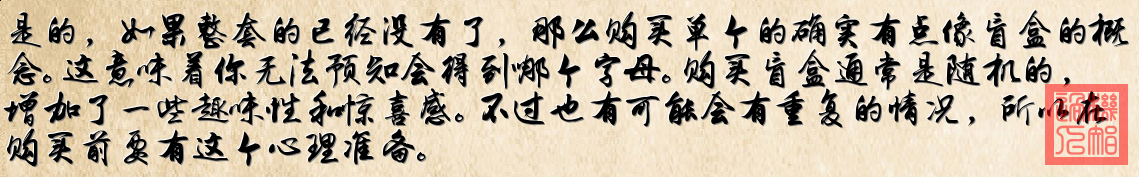 是的，如果整套的已经没有了，那么购买单个的确实有点像盲盒的概
念。这意味着你无法预知会得到哪个字母。购买盲盒通常是随机的，
增加了一些趣味性和惊喜感。不过也有可能会有重复的情况，所以在
购买前要有这个心理准备。